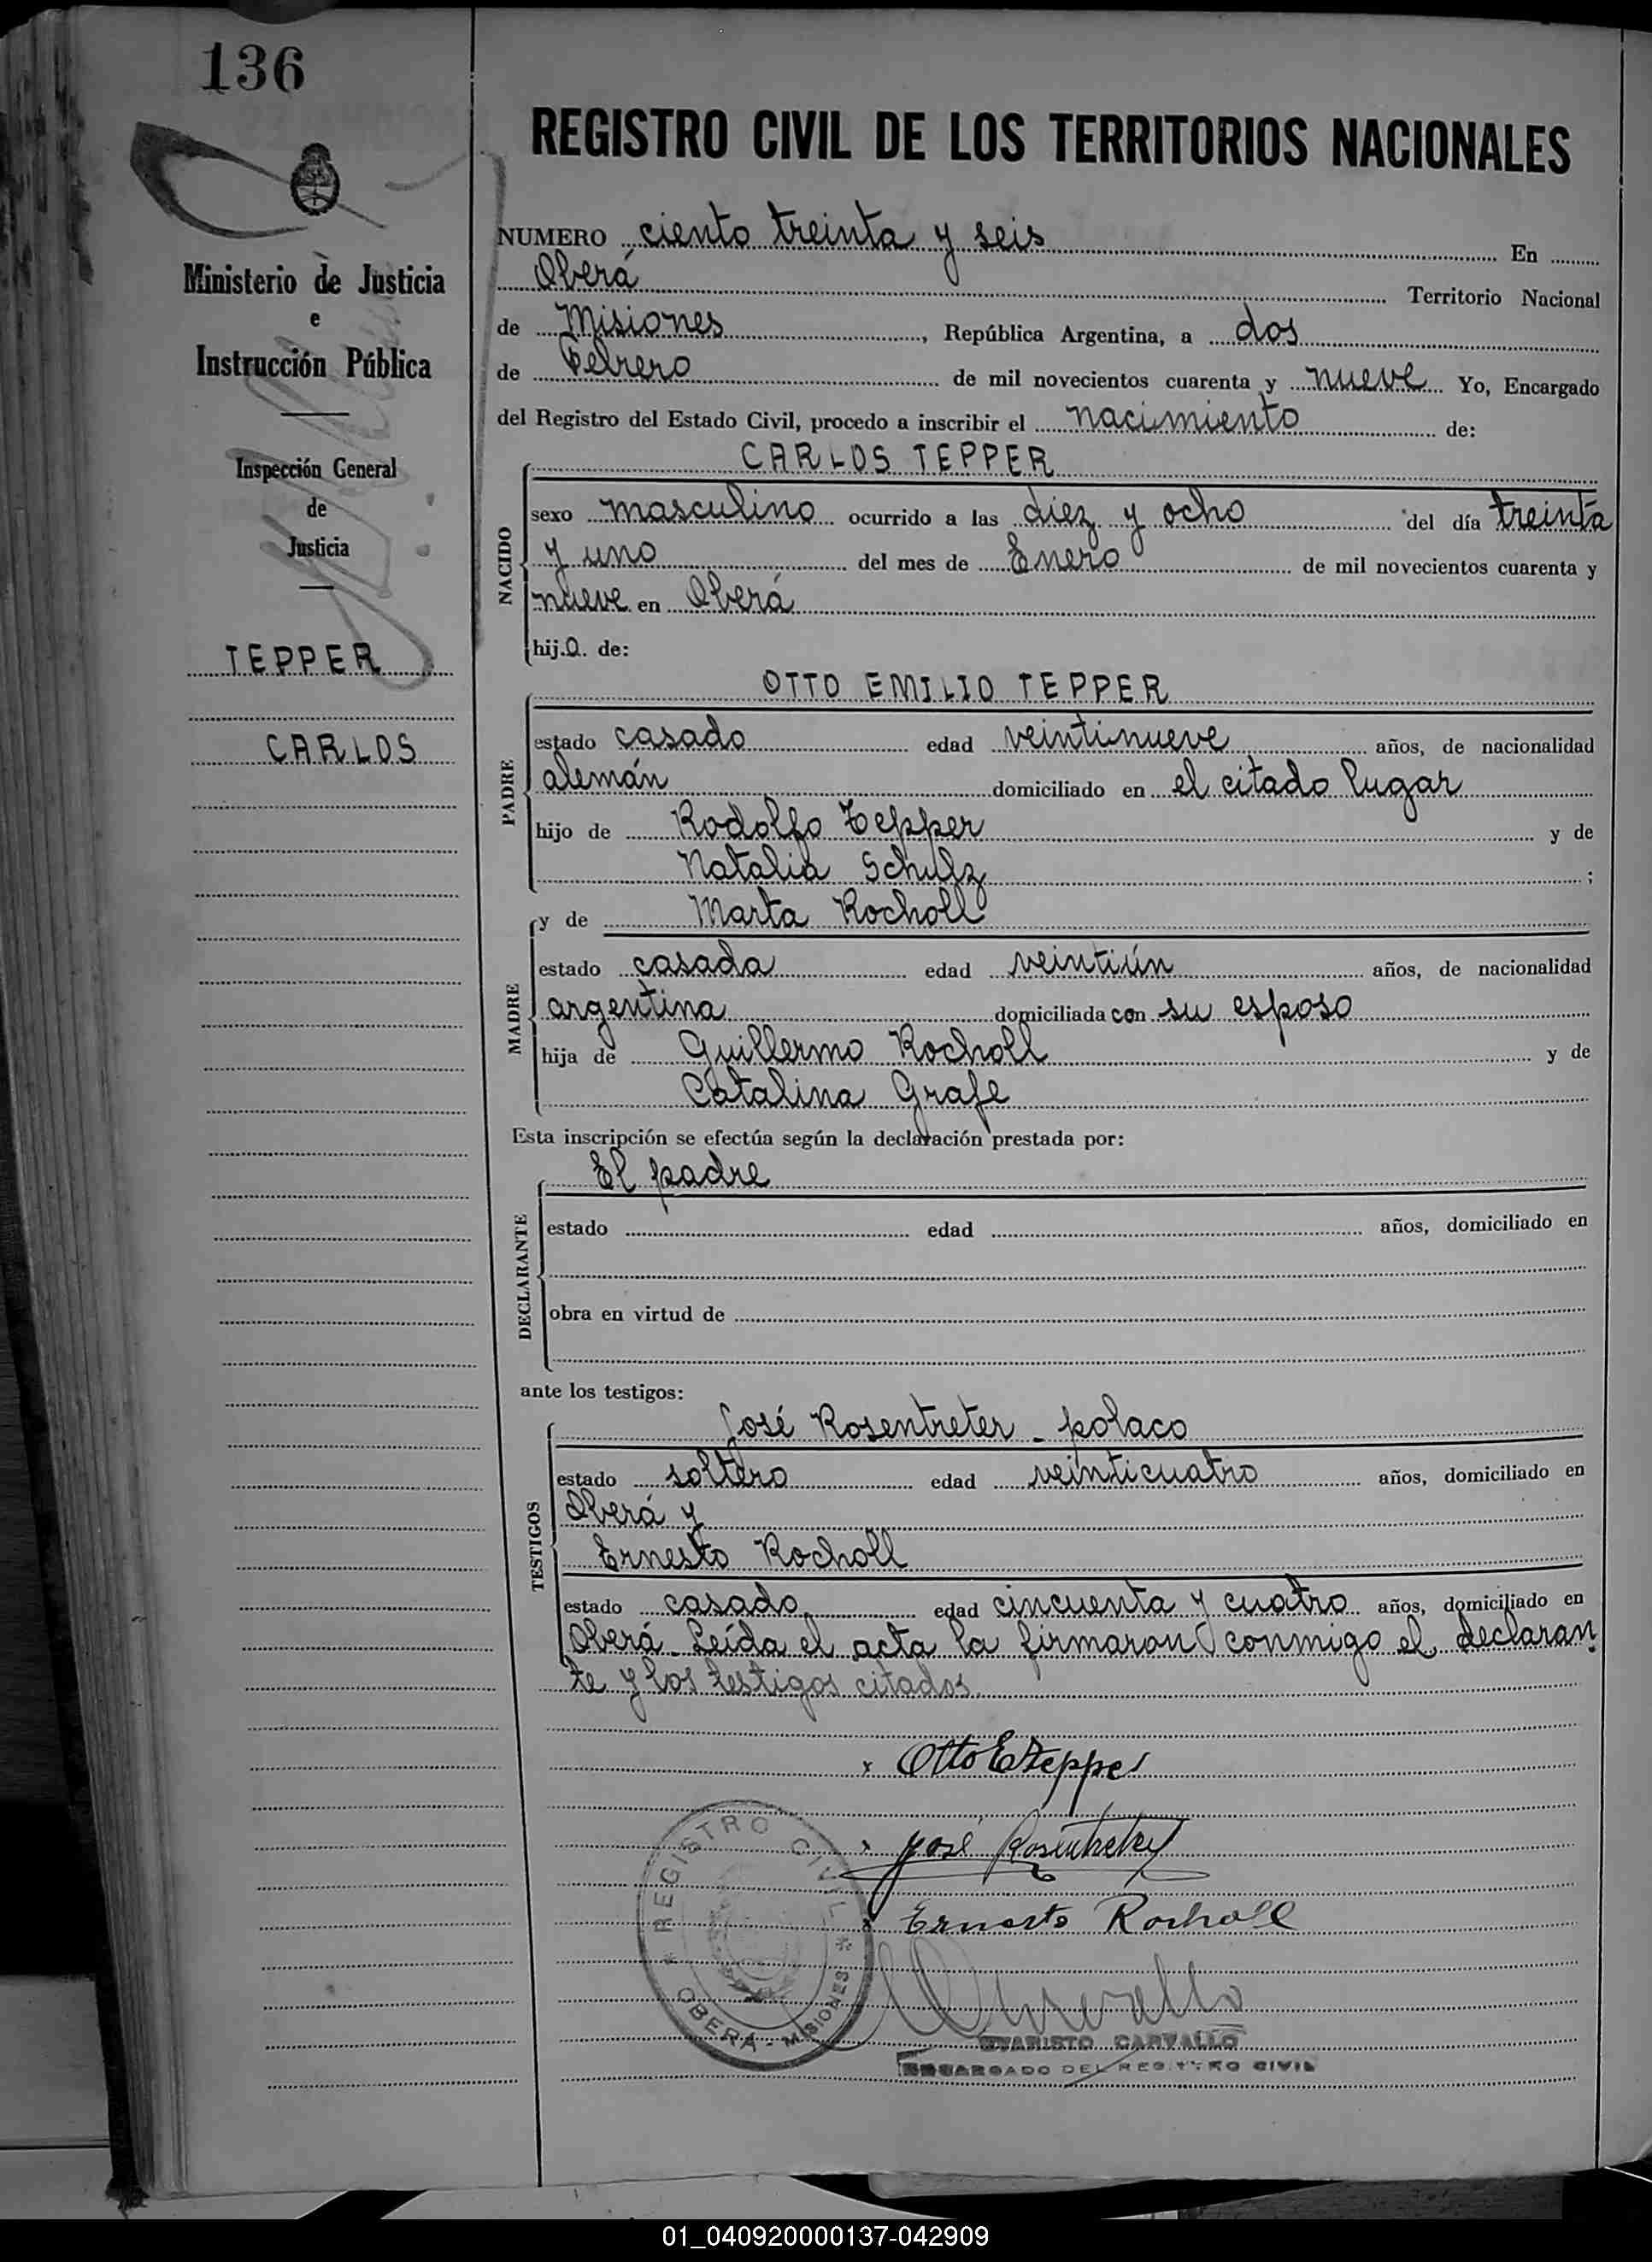 136
REGISTRO CIVIL DE LOS TERRITORIOS NACIONALES
Ministerio de Justicia
e
Instrucción Pública
Inspección General
de
Justicia
TEPPER
CARLOS
NUMERO ciento treinta y seis En
Oberá Territorio Nacional
de Misiones, República Argentina, a dos
de Febrero de mil novecientos cuarenta y nueve Yo, Encargado
del Registro del Estado Civil, procedo a inscribir el nacimiento de:
CARLOS TEPPER
NACIDO
sexo masculino ocurrido a las diez y ocho del día treinta
y uno del mes de Enero de mil novecientos cuarenta y
nueve en Oberá
hijo de:
OTTO EMILIO TEPPER
PADRE
estado casado edad veintinueve años, de nacionalidad
alemán domiciliado en el citado lugar
hijo de Rodolfo Tepper y de
Natalia Schulz ;
MADRE
y de Marta Rocholl
estado casada edad veintiún años, de nacionalidad
argentina domiciliada con su esposo
hija de Guillermo Rocholl y de
Catalina Grafe
Esta inscripción se efectúa según la declaración prestada por:
El padre
DECLARANTE
estado edad años, domiciliado en
obra en virtud de
ante los testigos:
José Rosentreter - polaco
TESTIGOS
estado soltero edad veinticuatro años, domiciliado en
Oberá y
Ernesto Rocholl
estado casado edad cincuenta y cuatro años, domiciliado en
Oberá. Leída el acta la firmaron conmigo el declaran
te y los testigos citados.
x Otto E Tepper
José Rosentreter
x Ernesto Rocholl
REGISTRO CIVIL
* OBERÁ - MISIONES *
Carvallo
EVARISTO CARVALLO
ENCARGADO DEL REGISTRO CIVIL
01_040920000137-042909